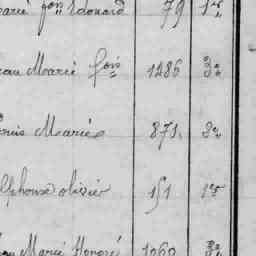 Marie fois Edouard 79 1re
Jean Marie fois 1286 3e
Louis Marie 871 3e
Alphonse olivier 151 1re
Jean Marie Honoré 1060 3e